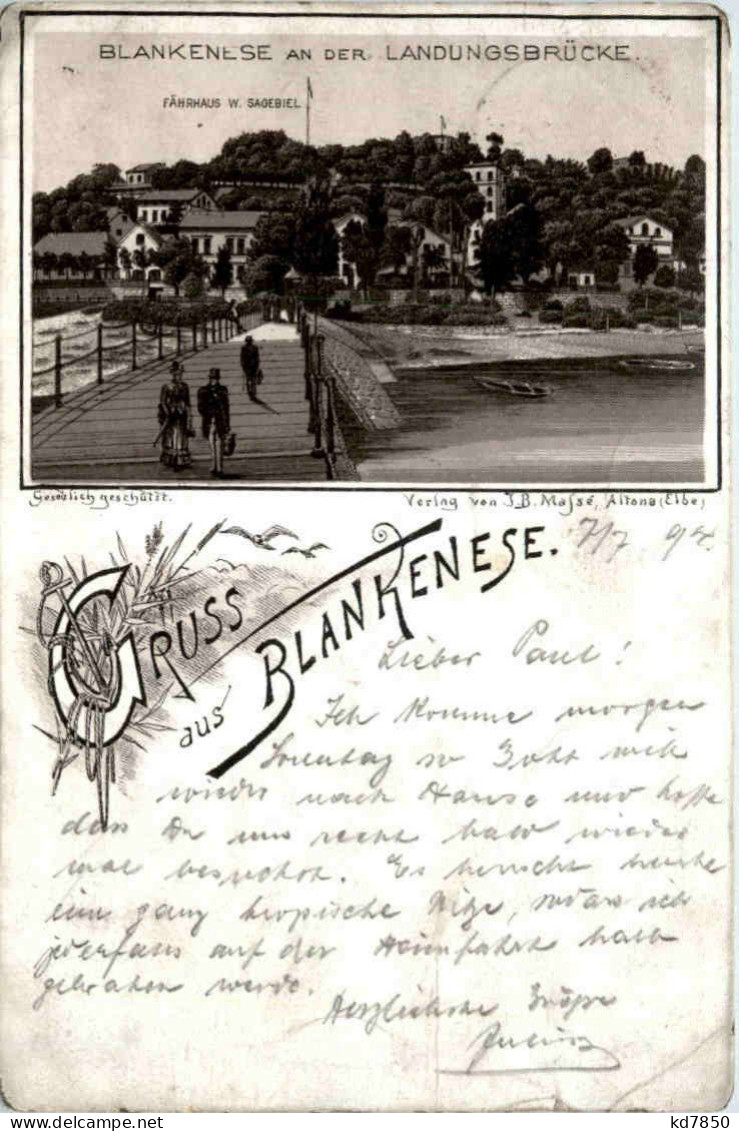 BLANKENESE AN DER LANDUNGSBRÜCKE.
FÄHRHAUS W. SAGEBIEL
Gesetzlich geschützt.
Verlag von J.B. Massé, Altona (Elbe)
GRUSS
aus BLANKENESE.
7/7 94.
Lieber Paul!
Ich komme morgen
Sonntag so Gott will
wieder nach Hause und hoffe
dass Du uns recht bald wieder
mal besuchst. Es herrscht heute
eine ganz tropische Hitze, sodass ich
jedenfalls auf der Heimfahrt halb
gebraten werde.
Herzlichste Grüsse
kd7850